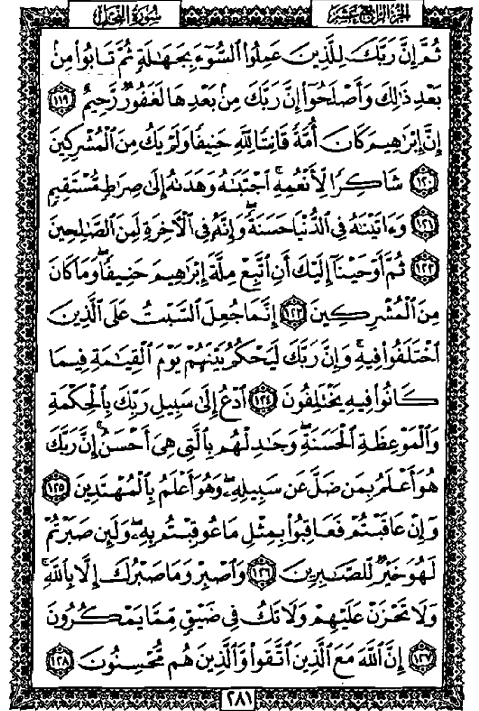 سُورَةُ النَّحۡل الجزء الرابع عشر
ثُمَّ إِنَّ رَبَّكَ لِلَّذِينَ عَمِلُوا۟ ٱلسُّوٓءَ بِجَهَٰلَةٍ ثُمَّ تَابُوا۟ مِنۢ
بَعْدِ ذَٰلِكَ وَأَصْلَحُوٓا۟ إِنَّ رَبَّكَ مِنۢ بَعْدِهَا لَغَفُورٌ رَّحِيمٌ ١١٩
إِنَّ إِبْرَٰهِيمَ كَانَ أُمَّةً قَانِتًا لِّلَّهِ حَنِيفًا وَلَمْ يَكُ مِنَ ٱلْمُشْرِكِينَ
١٢٠ شَاكِرًا لِّأَنْعُمِهِ ۚ ٱجْتَبَىٰهُ وَهَدَىٰهُ إِلَىٰ صِرَٰطٍ مُّسْتَقِيمٍ
١٢١ وَءَاتَيْنَٰهُ فِى ٱلدُّنْيَا حَسَنَةً ۖ وَإِنَّهُۥ فِى ٱلْءَاخِرَةِ لَمِنَ ٱلصَّٰلِحِينَ
١٢٢ ثُمَّ أَوْحَيْنَآ إِلَيْكَ أَنِ ٱتَّبِعْ مِلَّةَ إِبْرَٰهِيمَ حَنِيفًا ۖ وَمَا كَانَ
مِنَ ٱلْمُشْرِكِينَ ١٢٣ إِنَّمَا جُعِلَ ٱلسَّبْتُ عَلَى ٱلَّذِينَ
ٱخْتَلَفُوا۟ فِيهِ ۚ وَإِنَّ رَبَّكَ لَيَحْكُمُ بَيْنَهُمْ يَوْمَ ٱلْقِيَٰمَةِ فِيمَا
كَانُوا۟ فِيهِ يَخْتَلِفُونَ ١٢٤ ٱدْعُ إِلَىٰ سَبِيلِ رَبِّكَ بِٱلْحِكْمَةِ
وَٱلْمَوْعِظَةِ ٱلْحَسَنَةِ ۖ وَجَٰدِلْهُم بِٱلَّتِى هِىَ أَحْسَنُ ۚ إِنَّ رَبَّكَ
هُوَ أَعْلَمُ بِمَن ضَلَّ عَن سَبِيلِهِۦ ۖ وَهُوَ أَعْلَمُ بِٱلْمُهْتَدِينَ ١٢٥
وَإِنْ عَاقَبْتُمْ فَعَاقِبُوا۟ بِمِثْلِ مَا عُوقِبْتُم بِهِۦ ۖ وَلَئِن صَبَرْتُمْ
لَهُوَ خَيْرٌ لِّلصَّٰبِرِينَ ١٢٦ وَٱصْبِرْ وَمَا صَبْرُكَ إِلَّا بِٱللَّهِ ۚ
وَلَا تَحْزَنْ عَلَيْهِمْ وَلَا تَكُ فِى ضَيْقٍ مِّمَّا يَمْكُرُونَ
١٢٧ إِنَّ ٱللَّهَ مَعَ ٱلَّذِينَ ٱتَّقَوا۟ وَّٱلَّذِينَ هُم مُّحْسِنُونَ ١٢٨
٢٨١